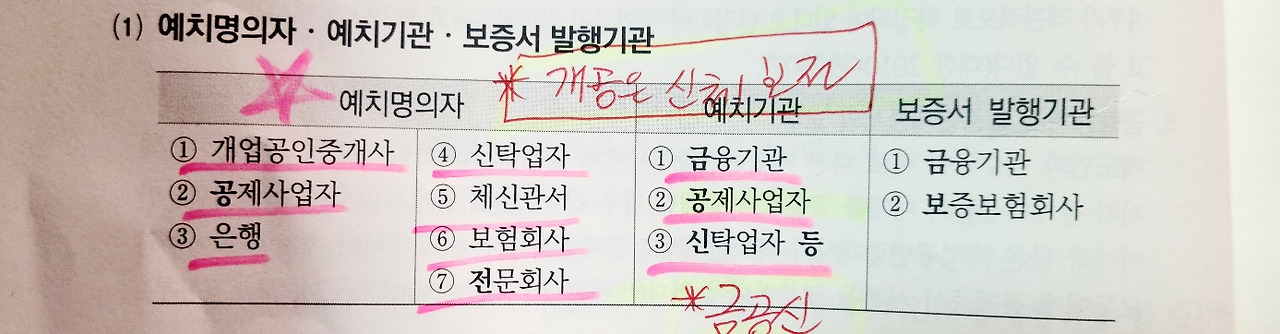 (1) 예치명의자 · 예치기관 · 보증서 발행기관
* 개공은 신체 보전
예치명의자 예치기관 보증서 발행기관
① 개업공인중개사 ④ 신탁업자 ① 금융기관 ① 금융기관
② 공제사업자 ⑤ 체신관서 ② 공제사업자 ② 보증보험회사
③ 은행 ⑥ 보험회사 ③ 신탁업자 등
⑦ 전문회사
* 금공신